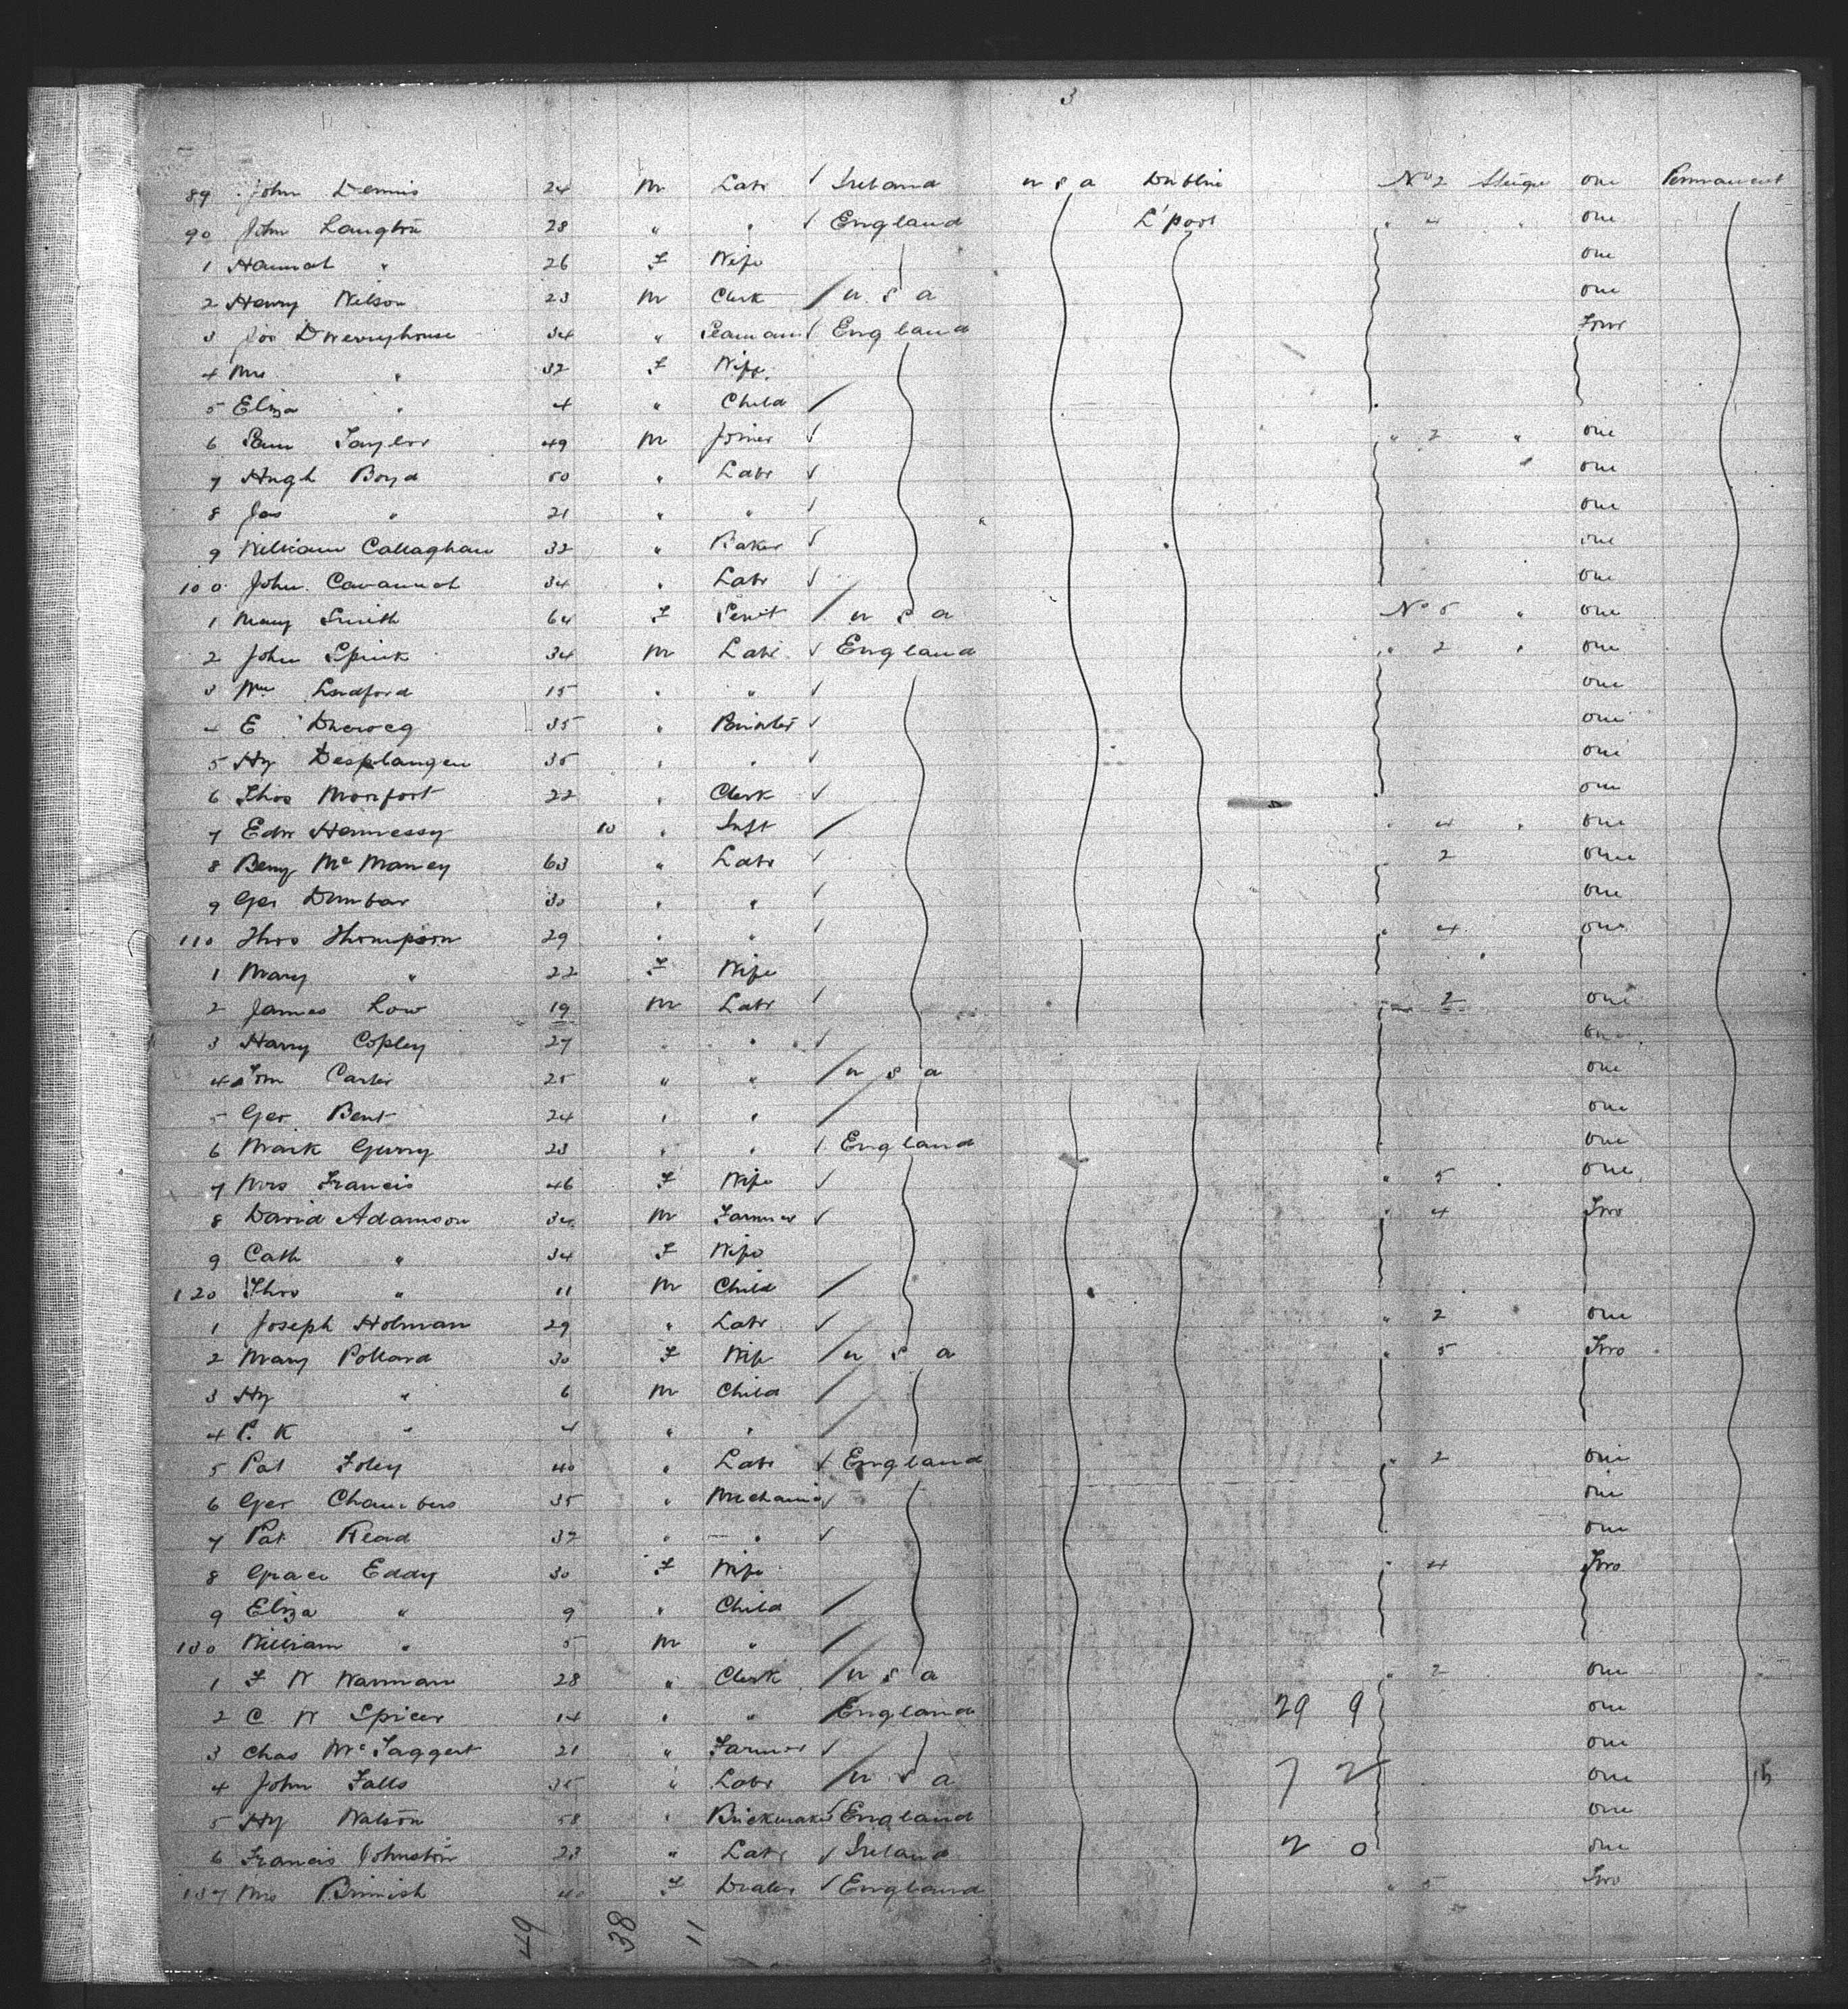 3
89 John Dennis 24 M Labr √ Ireland U S A Dublin No 2 Steige one Permanent
90 John Langton 28 " " √ England L'pool " 4 " one
1 Hannah " 26 F Wife one
2 Henry Wilson 23 M Clerk / U S A one
3 Jos Dwerryhouse 34 " Seaman √ England Four
4 Mrs " 32 F Wife
5 Eliza " 4 " Child /
6 Sam Taylor 49 M Joiner √ " 2 " one
7 Hugh Boyd 50 " Labr √ " one
8 Jas " 21 " " √ one
9 William Callaghan 32 " Baker √ one
100 John Cavannah 34 " Labr √ one
1 Mary Smith 64 F Servt / U S A No 5 " one
2 John Spink 34 M Labr √ England " 2 " one
3 Wm Ludford 15 " " √ one
4 E 35 " √ one
5 Hy Desplangen 35 " " √ one
6 Thos Monfort 22 " Clerk √ one
7 Edw Hennessy 10 " Inft / " 4 " one
8 Benj 63 " Labr √ 2 one
9 Geo Dunbar 30 " " √ one
110 Thos Thompson 29 " " √ " 4 one
1 Mary " 22 F Wife
2 James Low 19 M Labr √ " 2 one
3 Harry Copley 27 " " √ one
4 Tom Carter 25 " " / U S A one
5 Geo Bent 24 " " / one
6 Mark Gurry 23 " " √ England one
7 Mrs Francis 46 F Wife √ " 5 " one
8 David Adamson 34 M Farmer √ " 4 Two
9 Cath " 34 F Wife
120 Thos " 11 M Child /
1 Joseph Holman 29 " Labr √ " 2 " one
2 Mary Pollard 30 F Wife / U S A " 5 Two
3 Hy " 6 M Child /
4 P. K " 4 " " /
5 Pat Foley 40 " Labr √ England " 2 one
6 Geo Chambers 35 " Mechanic √ one
7 Pat Read 32 " " √ one
8 Grace Eddy 30 F Wife " 4 Two
9 Eliza " 9 " Child /
130 William " 5 M " /
1 F W Warman 28 " Clerk / U S A " 2 one
2 C W Spicer 14 " " / England 29 9 one
3 Chas McTaggert 21 " Farmer √ one
4 John Falls 35 " Labr / U S A 7 2 one
5 Hy Watson 58 " Brickmaker √ England one
6 Francis Johnston 23 " Labr √ Ireland 2 0 one
137 Mrs 40 F Dealer √ England " 5 Two
49 38 11